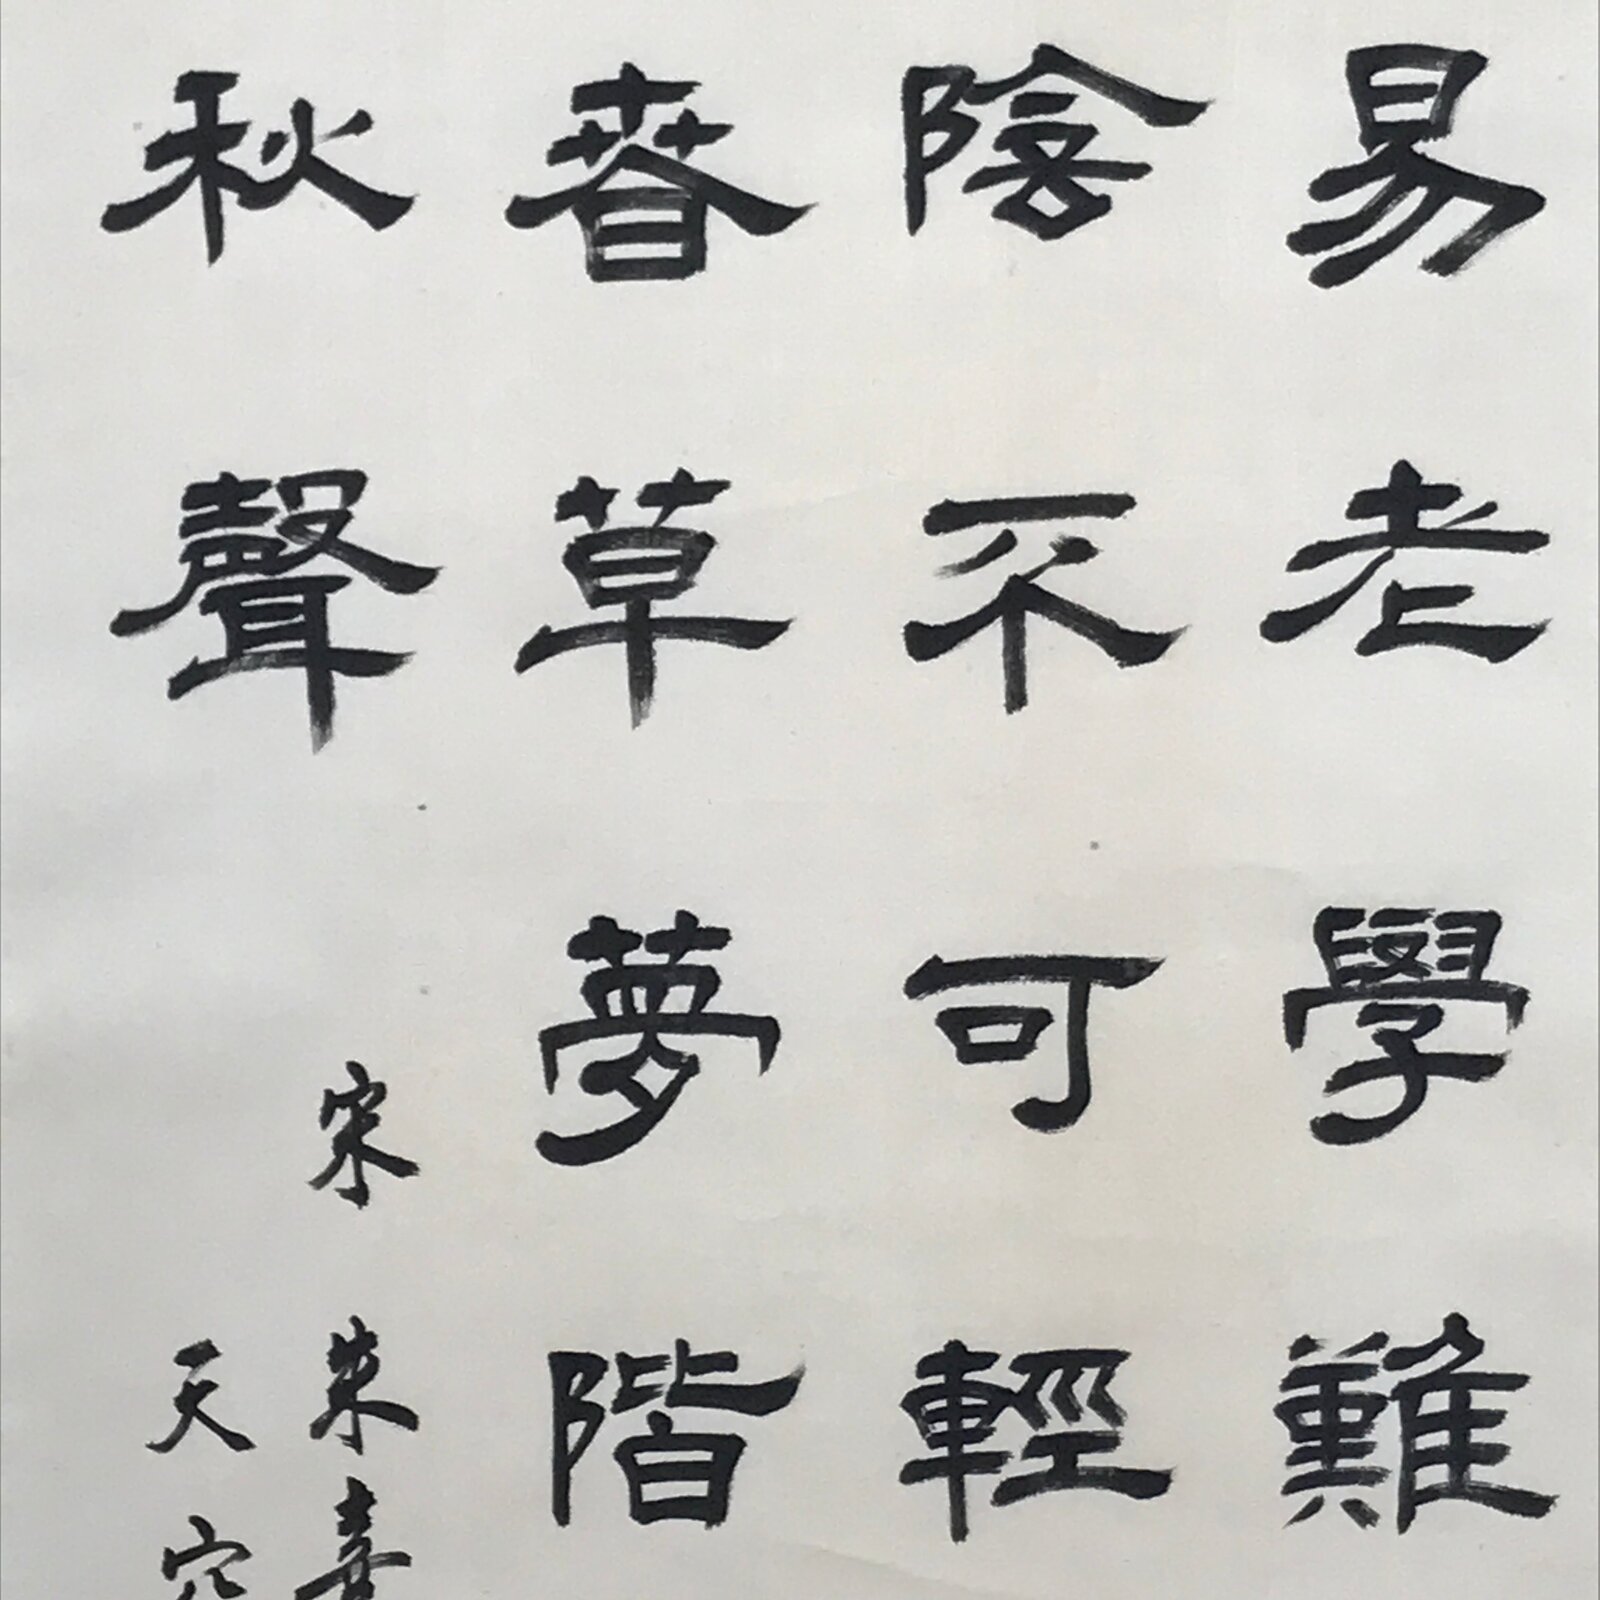 易老學難
陰不可輕
春草夢階
秋聲
宋朱熹
天穴